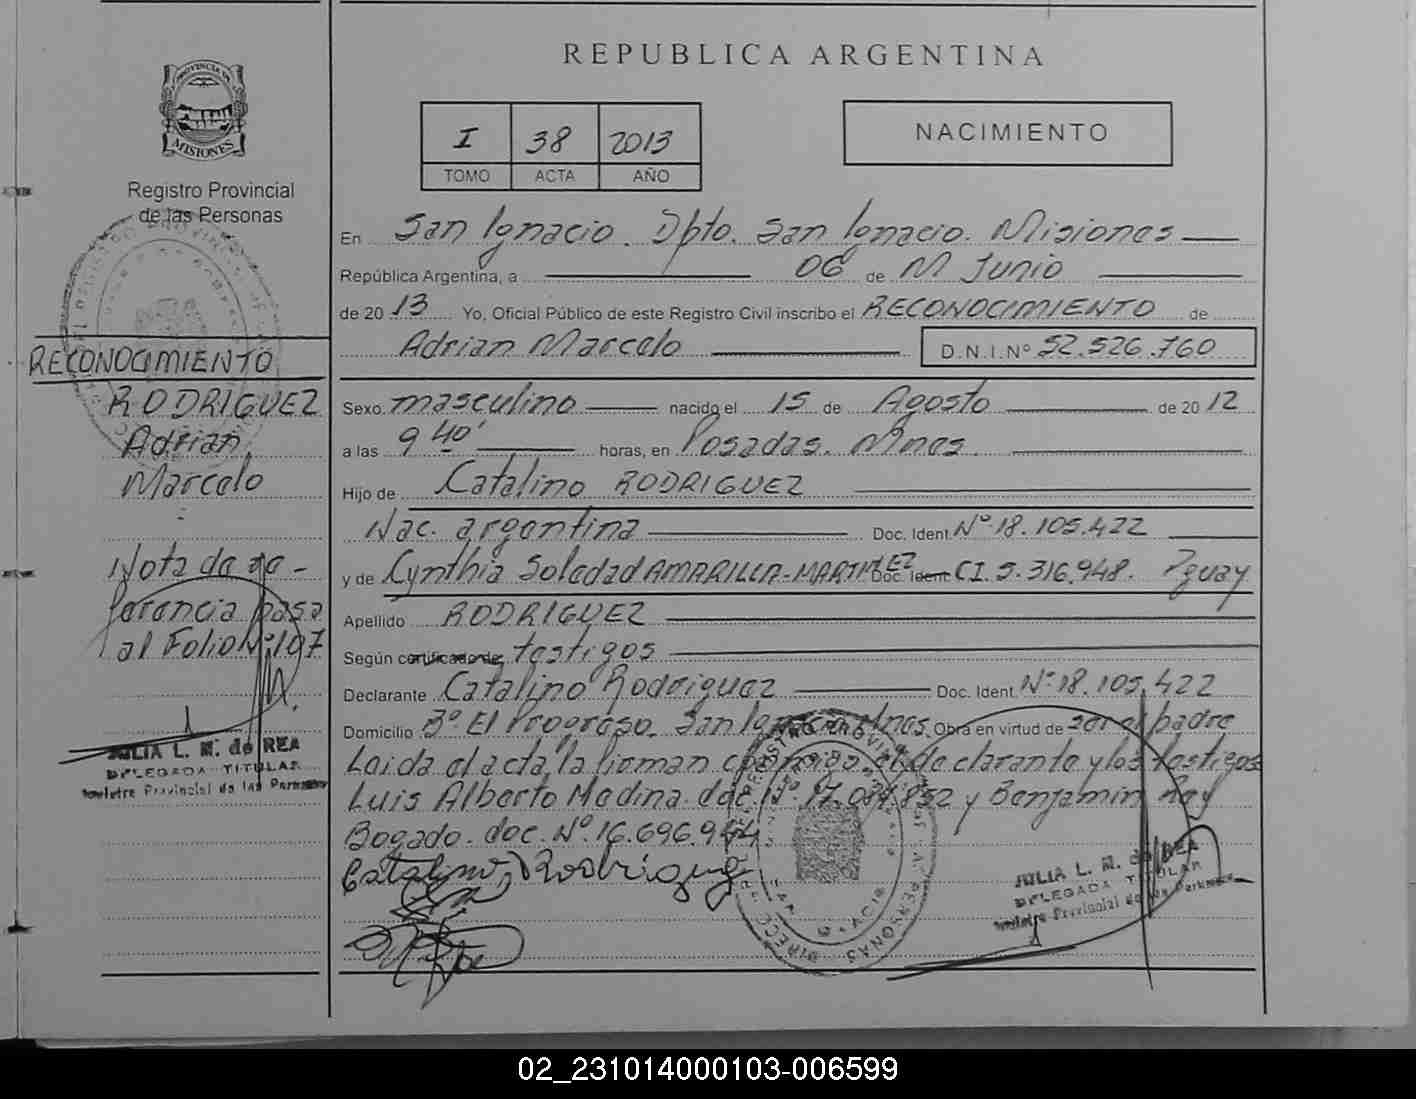 REPUBLICA ARGENTINA
PROVINCIA DE
MISIONES
Registro Provincial
de las Personas
I 38 2013
TOMO ACTA AÑO
NACIMIENTO
En San Ignacio. Dpto. San Ignacio. Misiones
República Argentina, a 06 de Junio
de 20 13 Yo, Oficial Público de este Registro Civil inscribo el RECONOCIMIENTO de
Adrian Marcelo D.N.I.Nº 52.526.760
Sexo masculino nacido el 15 de Agosto de 20 12
a las 9 40' horas, en Posadas. Mnes.
Hijo de Catalino RODRIGUEZ
Nac. argentina Doc. Ident. Nº 18.105.422
y de Cynthia Soledad AMARILLA-MARTINEZ Doc. Ident CI. 5.316.948. Pguay
Apellido RODRIGUEZ
Según certificado de testigos
Declarante Catalino Rodriguez Doc. Ident. Nº 18.105.422
Domicilio Bº El Progreso. San Ignacio. Mnes. Obra en virtud de ser el padre
Leida el acta, la firman conmigo el declarante y los testigos
Luis Alberto Medina. doc. Nº 17.084.852 y Benjamin Rey
Bogado. doc. Nº 16.696.944
Catalino Rodriguez
JULIA L. M. de REA
DELEGADA TITULAR
Registro Provincial de las Personas
RECONOCIMIENTO
RODRIGUEZ
Adrian
Marcelo
Nota de re-
ferencia pasa
al Folio Nº 107
JULIA L. M. de REA
DELEGADA TITULAR
Registro Provincial de las Personas
02_231014000103-006599